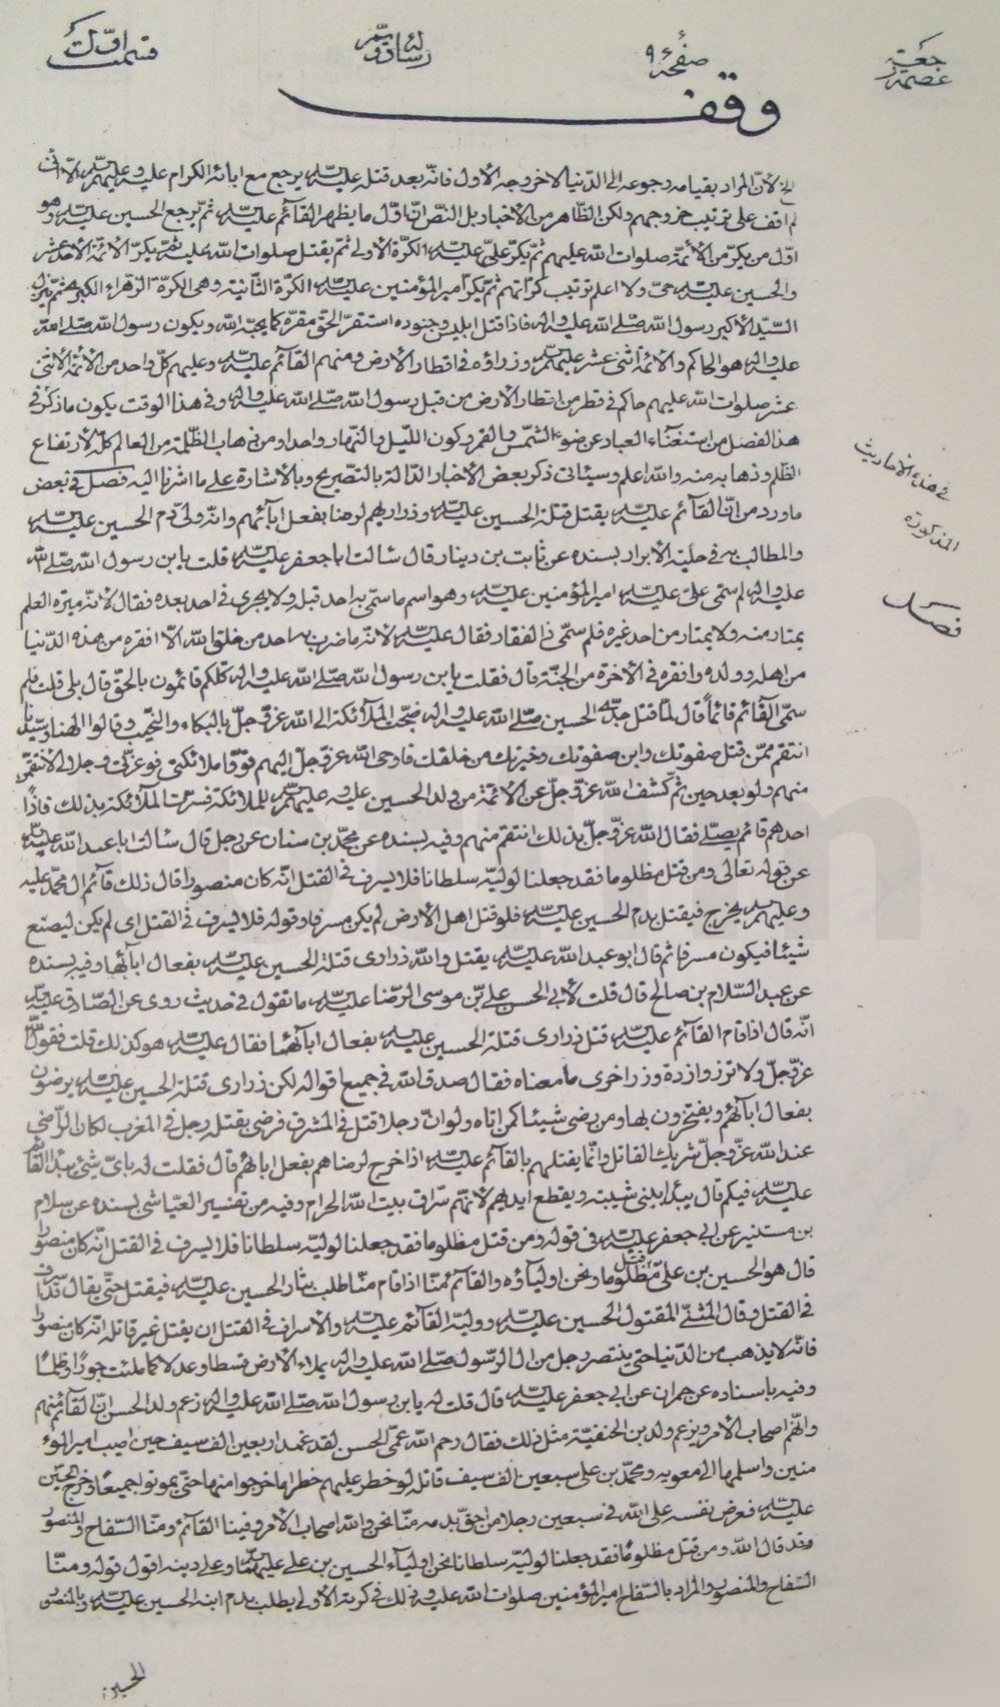 جعة عصمة
صفحة ٩
رسالة دويم
قسمت اول
وقف
لأن المراد بقيامه رجوعه الى الدنيا لا خروجه الأول فانه بعد قتله عليه السلام يرجع مع ابائه الكرام عليه وعليهم السلام الا انى
لم اقف على ترتيب خروجهم ولكن الظاهر من الأخبار بل النص ان اول ما يظهر القائم عليه السلام ثم يرجع الحسين عليه السلام وهو
اول من يكر من الأئمة صلوات الله عليهم ثم يكر على عليه السلام الكرة الاولى ثم يقتل صلوات الله عليه ثم يكر الائمة الاحد عشر
والحسين عليه السلام حى ولا اعلم ترتيب كراتهم ثم يكر امير المؤمنين عليه السلام الكرة الثانية وهى الكرة الزهراء الكبرى ثم ينزل
السيد الأكبر رسول الله صلى الله عليه واله فاذا قتل ابليس وجنوده استقر الحق مقره كما يحبه الله ويكون رسول الله صلى الله
عليه واله هو الحاكم والائمة اثنى عشر عليهم السلام وزراؤه فى اقطار الأرض ومنهم القائم عليه السلام وعليهم كل واحد من الأئمة الاثنى
عشر صلوات الله عليهم حاكم فى قطر من اقطار الأرض من قبل رسول الله صلى الله عليه واله وفى هذا الوقت يكون ما ذكر فى
هذا الفصل من استغناء العباد عن ضوء الشمس والقمر وكون الليل والنهار واحدا ومن ذهاب الظلمة من العالم كله لارتفاع
الظلم وذهابه منه والله اعلم وسيئاتى ذكر بعض الاخبار الدالة بالتصريح وبالاشارة على ما اشرنا اليه فصل فى بعض
ما ورد من ان القائم عليه السلام يقتل قتلة الحسين عليه السلام وذراريهم لرضا بفعل ابائهم وانه ولى دم الحسين عليه السلام
والمطالب به فى حلية الابرار بسنده عن ثابت بن دينار قال سالت ابا جعفر عليه السلام قلت يا بن رسول الله صلى الله
عليه واله لم سمى على عليه السلام امير المؤمنين عليه السلام وهو اسم ما سمى به احد قبله ولا يجرى فى احد بعده فقال لانه ميرة العلم
يمتار منه ولا يمتار من احد غيره فلم سمى ذى الفقار فقال عليه السلام لانه ما ضرب به احد من خلق الله الا افقره من هذه الدنيا
من اهله وولده وافقره فى الاخرة من الجنة قال فقلت يا بن رسول الله صلى الله عليه واله كلكم قائمون بالحق قال بلى قلت فلم
سمى القائم قائما قال لما قتل جدى الحسين صلى الله عليه واله ضجت الملائكة الى الله عز وجل بالبكاء والنحيب وقالوا الهنا وسيدنا
انتقم ممن قتل صفوتك وابن صفوتك وخيرتك من خلقك فاوحى الله عز وجل اليهم قروا ملائكتى فوعزتى وجلالى لأنتقمن
منهم ولو بعد حين ثم كشف الله عز وجل عن الائمة من ولد الحسين عليه وعليهم السلام للملائكة فسرت الملائكة بذلك فاذا
احدهم قائم يصلى فقال الله عز وجل بذلك انتقم منهم وفيه بسنده عن محمد بن سنان عن رجل قال سالت ابا عبد الله عليه السلام
عن قوله تعالى ومن قتل مظلوما فقد جعلنا لوليه سلطانا فلا يسرف فى القتل انه كان منصورا قال ذلك قائم ال محمد عليه
وعليهم السلام يخرج فيقتل بدم الحسين عليه السلام فلو قتل اهل الارض لم يكن مسرفا وقوله فلا يسرف فى القتل اى لم يكن ليصنع
شيئا فيكون مسرفا ثم قال ابو عبد الله عليه السلام يقتل والله ذرارى قتلة الحسين عليه السلام بفعال ابائها وفيه بسنده
عن عبد السلام بن صالح قال قلت لأبى الحسن على بن موسى الرضا عليه السلام ما تقول فى حديث روى عن الصادق عليه السلام
انه قال اذا قام القائم عليه السلام قتل ذرارى قتلة الحسين عليه السلام بفعال ابائها فقال عليه السلام هو كذلك قلت فقول الله
عز وجل ولا تزر وازرة وزر اخرى ما معناه فقال صدق الله فى جميع اقواله لكن ذرارى قتلة الحسين عليه السلام يرضون
بفعال ابائهم ويفتخرون بها ومن رضى شيئا كمن اتاه ولو ان رجلا قتل فى المشرق فرضى بقتله رجل فى المغرب لكان الراضى
عند الله عز وجل شريك القاتل وانما يقتلهم بالقائم عليه السلام اذا خرج لرضاهم بفعل ابائهم قال فقلت له باى شئ يبدء القائم
عليه السلام فيكم قال يبدا ببنى شيبه ويقطع ايديهم لانهم سراق بيت الله الحرام وفيه من تفسير العياشى بسنده عن سلام
بن مستنير عن ابى جعفر عليه السلام فى قوله ومن قتل مظلوما فقد جعلنا لوليه سلطانا فلا يسرف فى القتل انه كان منصورا
قال هو الحسين بن على قتل مظلوما ونحن اولياؤه والقائم منا اذا قام منا طلب بثار الحسين عليه السلام فيقتل حتى يقال قد اسرف
فى القتل وقال المقتول الحسين عليه السلام ووليه القائم عليه السلام والاسراف فى القتل ان يقتل غير قاتله انه كان منصورا
فانه لا يذهب من الدنيا حتى ينتصر رجل من ال الرسول صلى الله عليه واله يملاء الأرض قسطا وعدلا كما ملئت جورا وظلما
وفيه باسناده عن حمران عن ابى جعفر عليه السلام قال قلت له يا بن رسول الله صلى الله عليه واله زعم ولد الحسن ان القائم منهم
وانهم اصحاب الأمر ويزعم ولد بن الحنفية مثل ذلك فقال رحم الله عمى الحسن لقد غمد اربعين الف سيف حين اصيب امير المؤ
منين واسلمها الى معويه ومحمد بن على سبعين الف سيف قاتله لو خطر عليهم خطر ما خرجوا منها حتى يموتوا جميعا وخرج الحسين
عليه السلام فعرض نفسه على الله فى سبعين رجلا من احق بدمه منا نحن والله اصحاب الأمر وفينا القائم ومنا السفاح والمنصور
وقد قال الله ومن قتل مظلوما فقد جعلنا لوليه سلطانا نحن اولياء الحسين بن على عليهما السلام وعلى دينه اقول قوله ومنا
السفاح والمنصور والمراد بالسفاح امير المؤمنين صلوات الله عليه وذلك فى كرته الأولى يطلب بدم ابنه الحسين عليه السلام وبالمنصور
فى هذه الأحاديث
المذكورة
فصل
الحسين